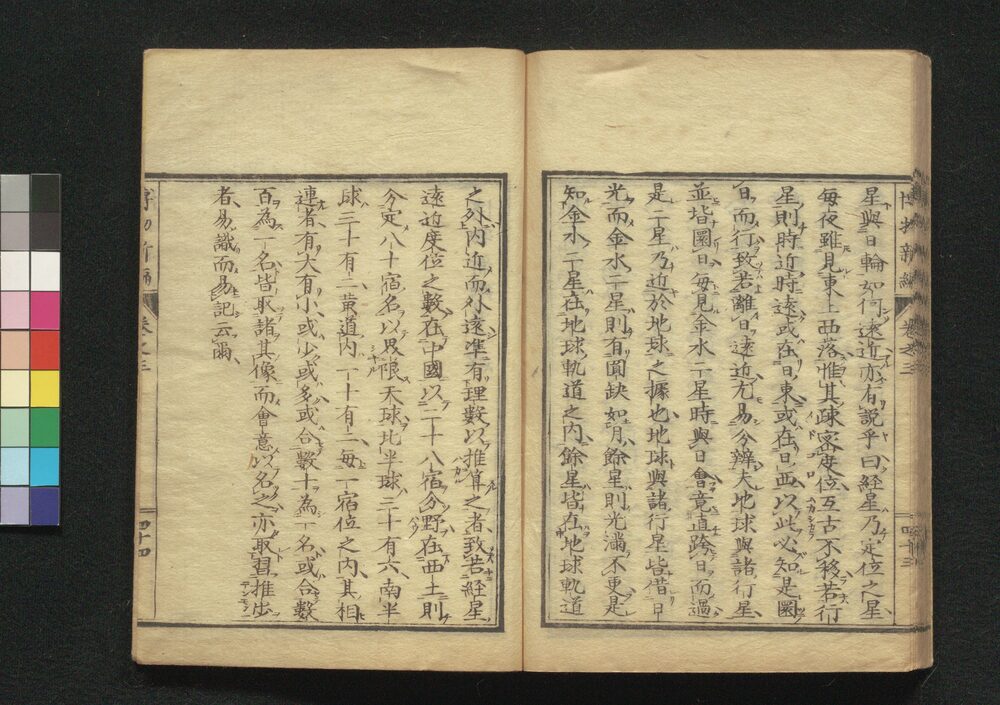 博物新編 卷之三 四十三
星與日輪如何遠近亦有説乎曰経星乃定位之星
毎夜雖見東上西落惟其疎密度位亙古不移若行
星則時近時遠或在日東或在日西以此必知是圜
日而行致若離日遠近尤易分辨夫地球與諸行星
並皆圜日毎見金水二星時與日會竟直跨日而過
是二星乃近於地球之據也地球與諸行星皆借日
光而金水二星則有圓缺如月餘星則光滿不更是
知金水二星在地球軌道之内餘星皆在地球軌道
之外内近而外遠準有理數以推算之者致若経星
遠近度位之數在中國以二十八宿分野在西土則
分定八十宿名以界限天球北半球三十有六南半
球三十有二黄道内一十有二毎一宿位之内其相
連者有大有小或少或多或合數十為一名或合數
百為一名皆取諸其像而會意以名之亦取習推出
者易識而易記云爾
博物新編 卷之三 四十四